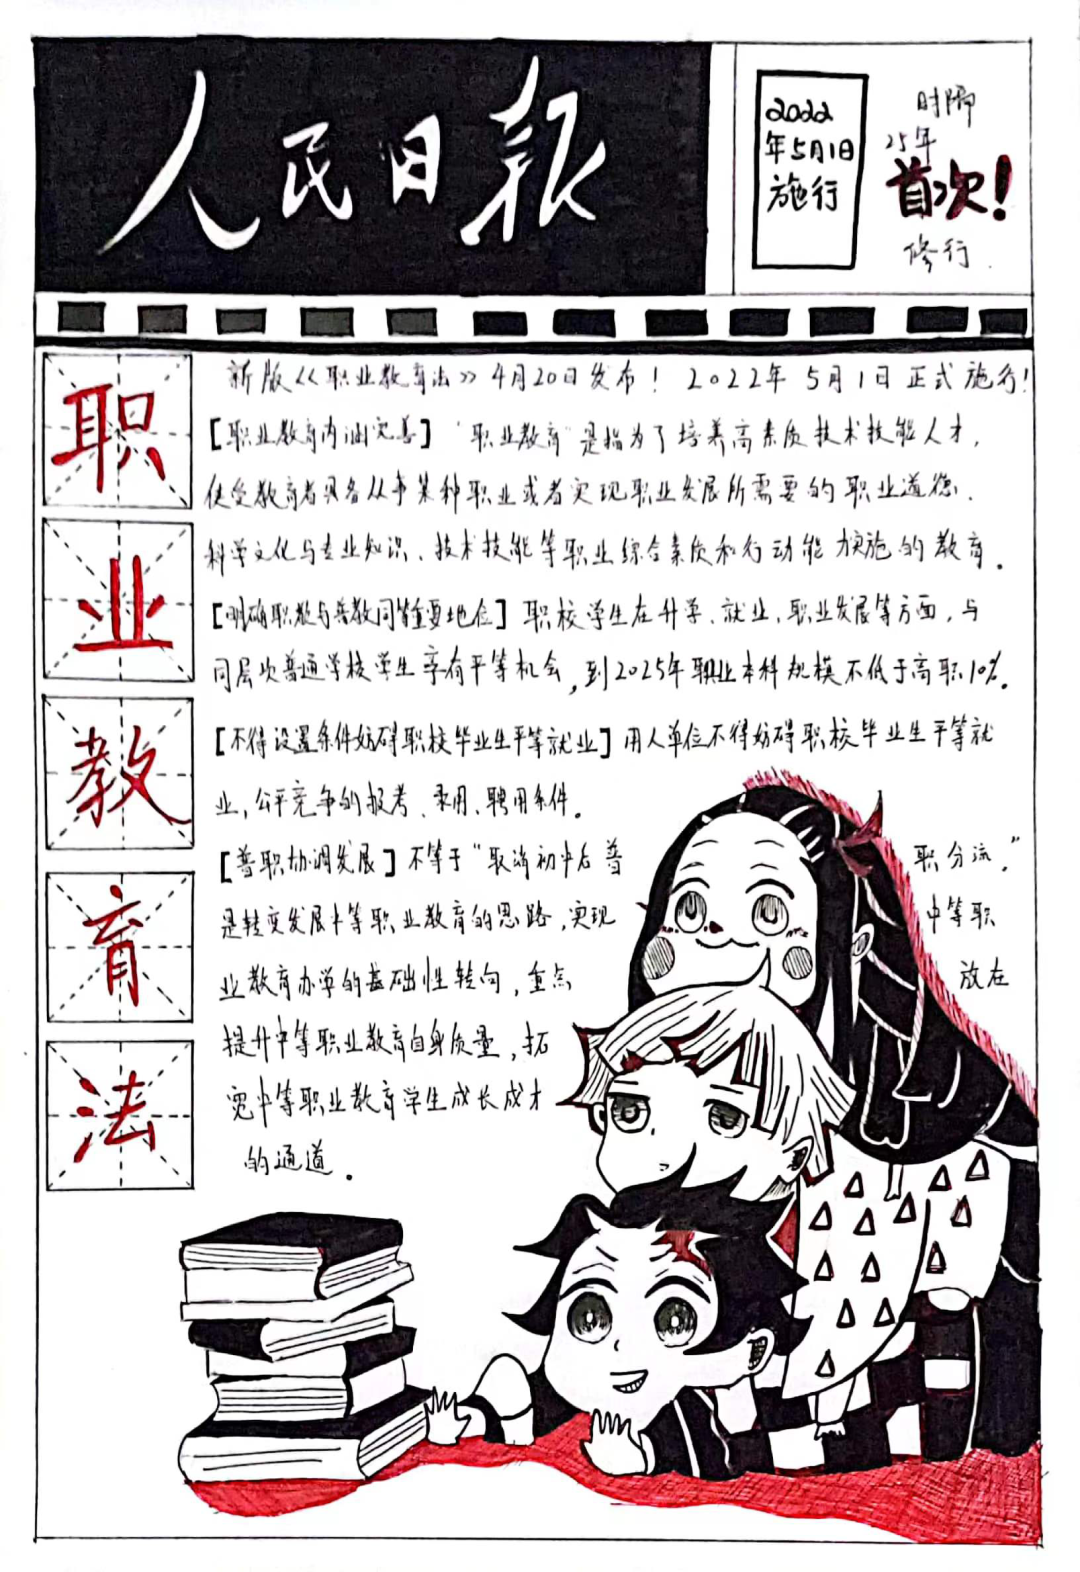 人民日报
2022
年5月1日
施行
时隔
25年
首次!
修行
职
业
教
育
法
新版《职业教育法》4月20日发布! 2022年5月1日正式施行!
[职业教育内涵完善] “职业教育”是指为了培养高素质技术技能人才,
使受教育者具备从事某种职业或者实现职业发展所需要的职业道德、
科学文化与专业知识、技术技能等职业综合素质和行动能力实施的教育。
[明确职教与普教同等重要地位] 职校学生在升学、就业、职业发展等方面,与
同层次普通学校学生享有平等机会,到2025年职业本科规模不低于高职10%。
[不得设置条件妨碍职校毕业生平等就业] 用人单位不得妨碍职校毕业生平等就
业,公平竞争的报考、录用、聘用条件。
[普职协调发展] 不等于“取消初中后普 职分流,”
是转变发展中等职业教育的思路,实现 中等职
业教育办学的基础性转向,重点 放在
提升中等职业教育自身质量,拓
宽中等职业教育学生成长成才
的通道。